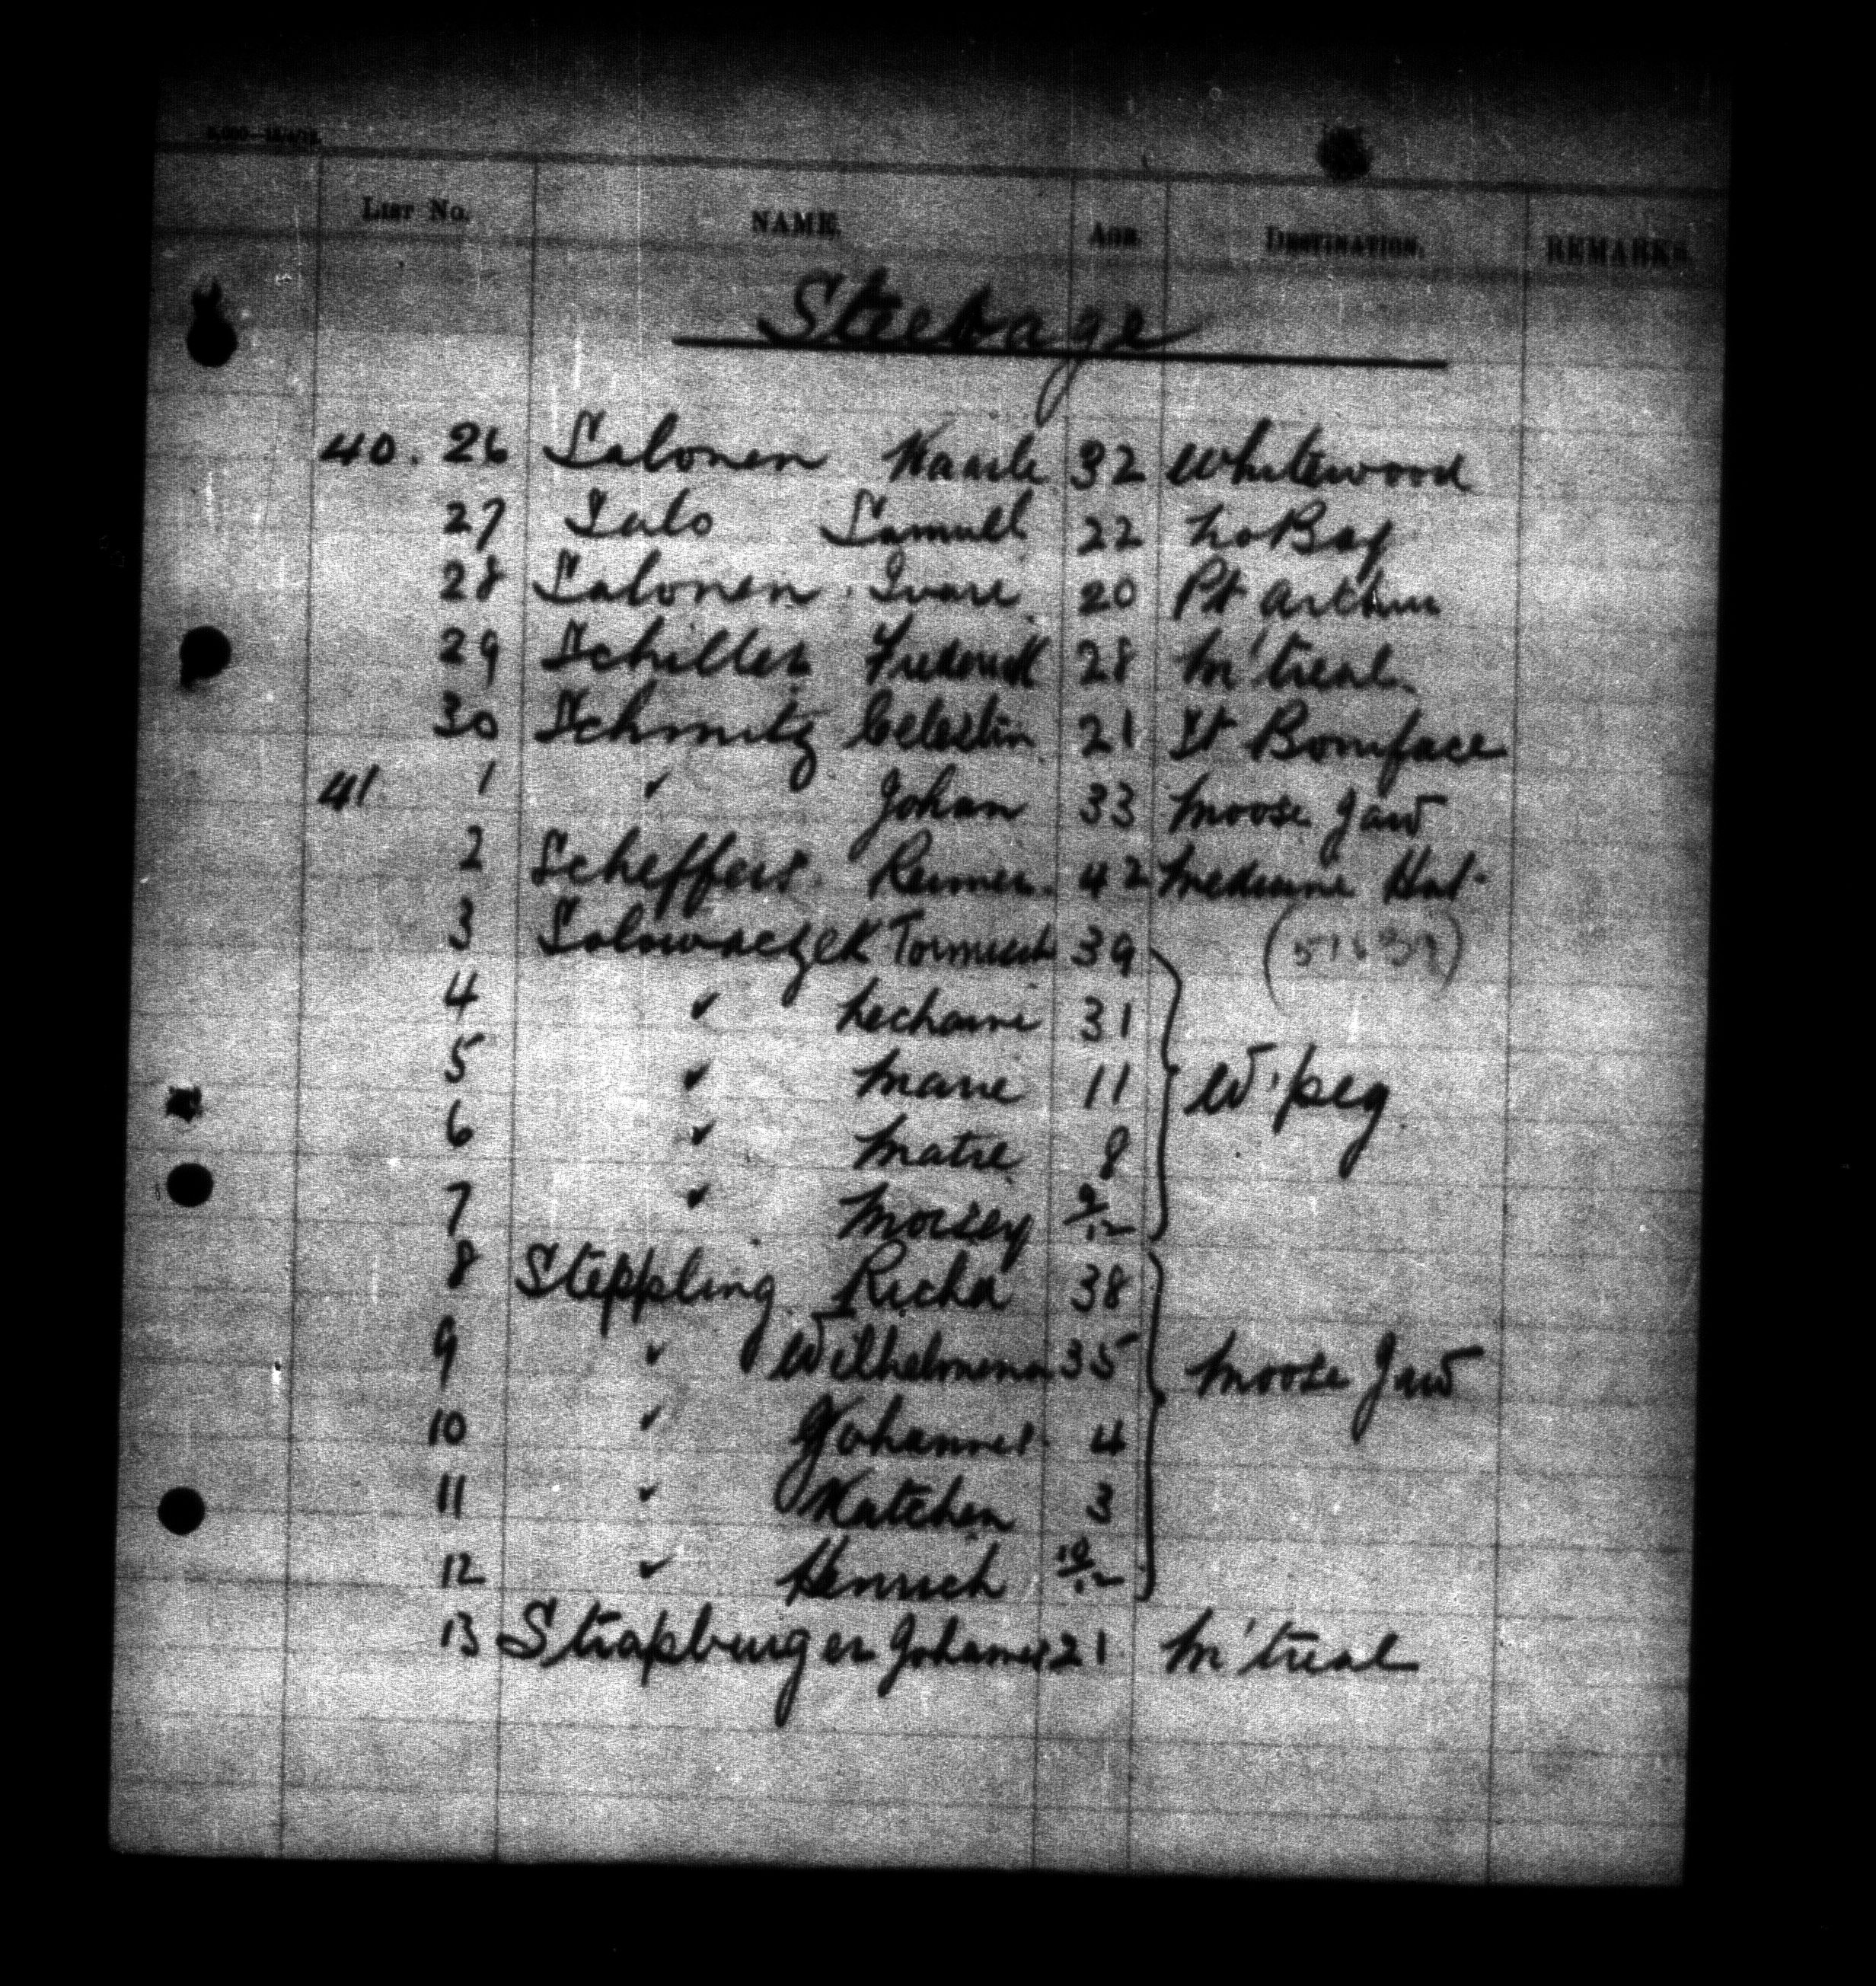 List No. NAME. Age. Destination. REMARKS
Steerage
40. 26 Salonen Kaarle 32 Whitewood
27 Salo Samuel 22 No Bay
28 Salonen Ivare 20 Pt Arthur
29 Schiller Frederick 28 M'treal
30 Schmitz Celestin 21 St Boniface
41 1 " Johan 33 Moose Jaw
2 Scheffers Reimer 42 Medicine Hat
3 Solowaczek 39
4 " 31
5 " Marie 11 W'peg
6 " Matre 8
7 " Morsey 9/12
8 Steppling Richd 38
9 " Wilhelmena 35 Moose Jaw
10 " Johannes 4
11 " Katchen 3
12 " Henrich 10/12
13 Strassburger Johannes 21 M'treal